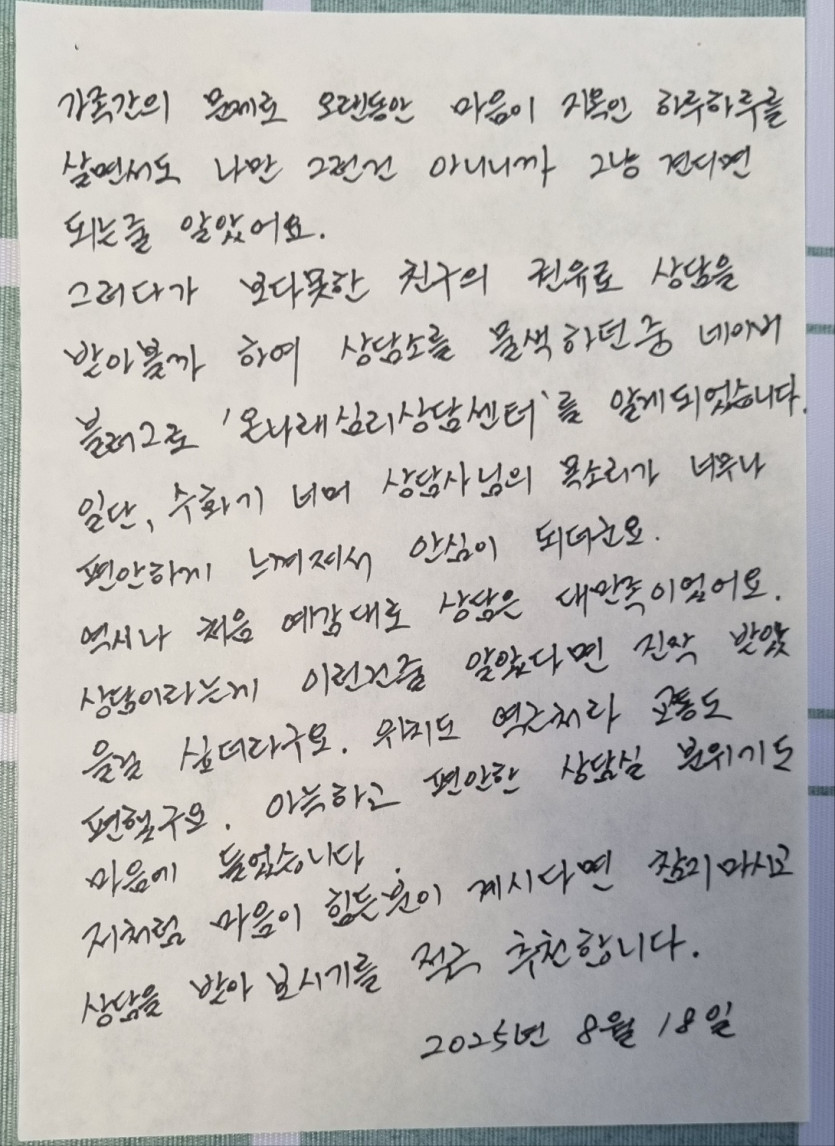 가족간의 문제로 오랜동안 마음이 지옥인 하루하루를
살면서도 나만 그런건 아니니까 그냥 견디면
되는줄 알았어요.
그러다가 보다못한 친구의 권유로 상담을
받아볼까 하여 상담소를 물색하던중 네이버
블러그로 '온나래심리상담센터'를 알게되었습니다.
일단, 수화기 너머 상담사님의 목소리가 너무나
편안하게 느껴져서 안심이 되더군요.
역시나 처음 예감대로 상담은 대만족이었어요.
상담이라는게 이런건줄 알았다면 진작 받았
을걸 싶더라구요. 위치도 역근처라 교통도
편했구요. 아늑하고 편안한 상담실 분위기도
마음에 들었습니다.
저처럼 마음이 힘든분이 계시다면 참지마시고
상담을 받아보시기를 적극 추천합니다.
2025년 8월 18일